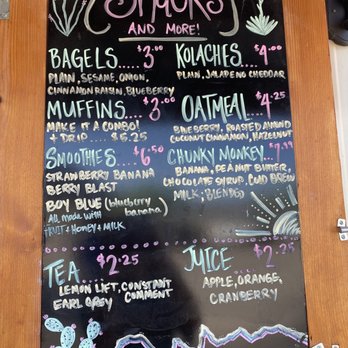 SNACKS
AND MORE!
BAGELS.... $3.00
PLAIN, SESAME, ONION,
CINNAMON RAISIN, BLUEBERRY
MUFFINS.... $3.00
MAKE IT A COMBO!
+ DRIP..... $5.25
SMOOTHIES.... $6.50
STRAWBERRY BANANA
BERRY BLAST
BOY BLUE (blueberry
banana)
All made with
FRUIT + HONEY + MILK
KOLACHES... $4.00
PLAIN, JALAPENO CHEDDAR
OATMEAL.. $4.25
BLUEBERRY, ROASTED ALMOND
COCONUT CINNAMON, HAZELNUT
CHUNKY MONKEY.. $7.99
BANANA, PEANUT BUTTER,
CHOCOLATE SYRUP, COLD BREW
MILK, BLENDED
TEA..... $2.25
LEMON LIFT, CONSTANT
COMMENT
EARL GREY
JUICE..... $2.25
APPLE, ORANGE,
CRANBERRY